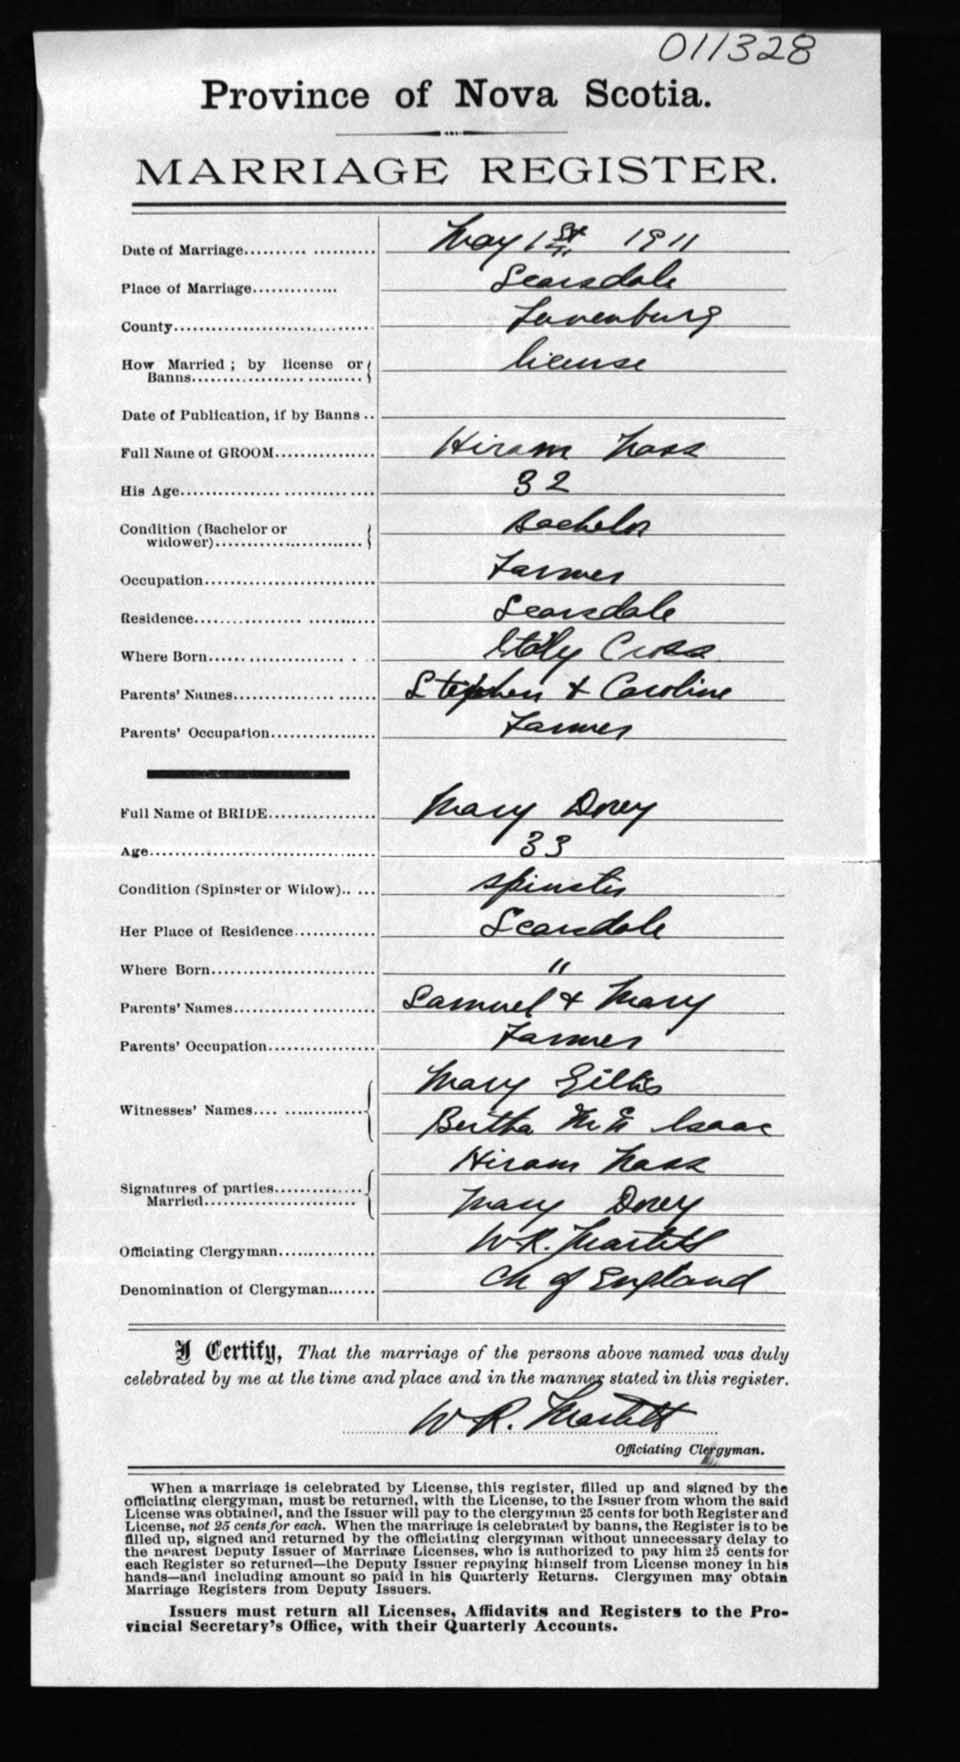 011328
Province of Nova Scotia.
MARRIAGE REGISTER.
Date of Marriage.......... May 1st 1911
Place of Marriage.......... Scarsdale
County.......... Lunenburg
How Married ; by license or
Banns.......... license
Date of Publication, if by Banns ..
Full Name of GROOM.......... Hiram Nass
His Age.......... 32
Condition (Bachelor or
widower).......... Bachelor
Occupation.......... Farmer
Residence.......... Scarsdale
Where Born.......... Holy Cross
Parents' Names.......... Stephen & Caroline
Parents' Occupation.......... Farmer
Full Name of BRIDE.......... Mary Dorey
Age.......... 33
Condition (Spinster or Widow).. ... spinster
Her Place of Residence.......... Scarsdale
Where Born.......... "
Parents' Names.......... Samuel & Mary
Parents' Occupation.......... Farmer
Mary Gillis
Witnesses' Names.......... Bertha Isaac
Hiram Nass
Signatures of parties
Married.......... Mary Dorey
Officiating Clergyman.......... W.R. Martell
Denomination of Clergyman....... Ch of England
I Certify, That the marriage of the persons above named was duly
celebrated by me at the time and place and in the manner stated in this register.
W R. Martell
Officiating Clergyman.
When a marriage is celebrated by License, this register, filled up and signed by the
officiating clergyman, must be returned, with the License, to the Issuer from whom the said
License was obtained, and the Issuer will pay to the clergyman 25 cents for both Register and
License, not 25 cents for each. When the marriage is celebrated by banns, the Register is to be
filled up, signed and returned by the officiating clergyman without unnecessary delay to
the nearest Deputy Issuer of Marriage Licenses, who is authorized to pay him 25 cents for
each Register so returned—the Deputy Issuer repaying himself from License money in his
hands—and including amount so paid in his Quarterly Returns. Clergymen may obtain
Marriage Registers from Deputy Issuers.
Issuers must return all Licenses, Affidavits and Registers to the Pro-
vincial Secretary's Office, with their Quarterly Accounts.